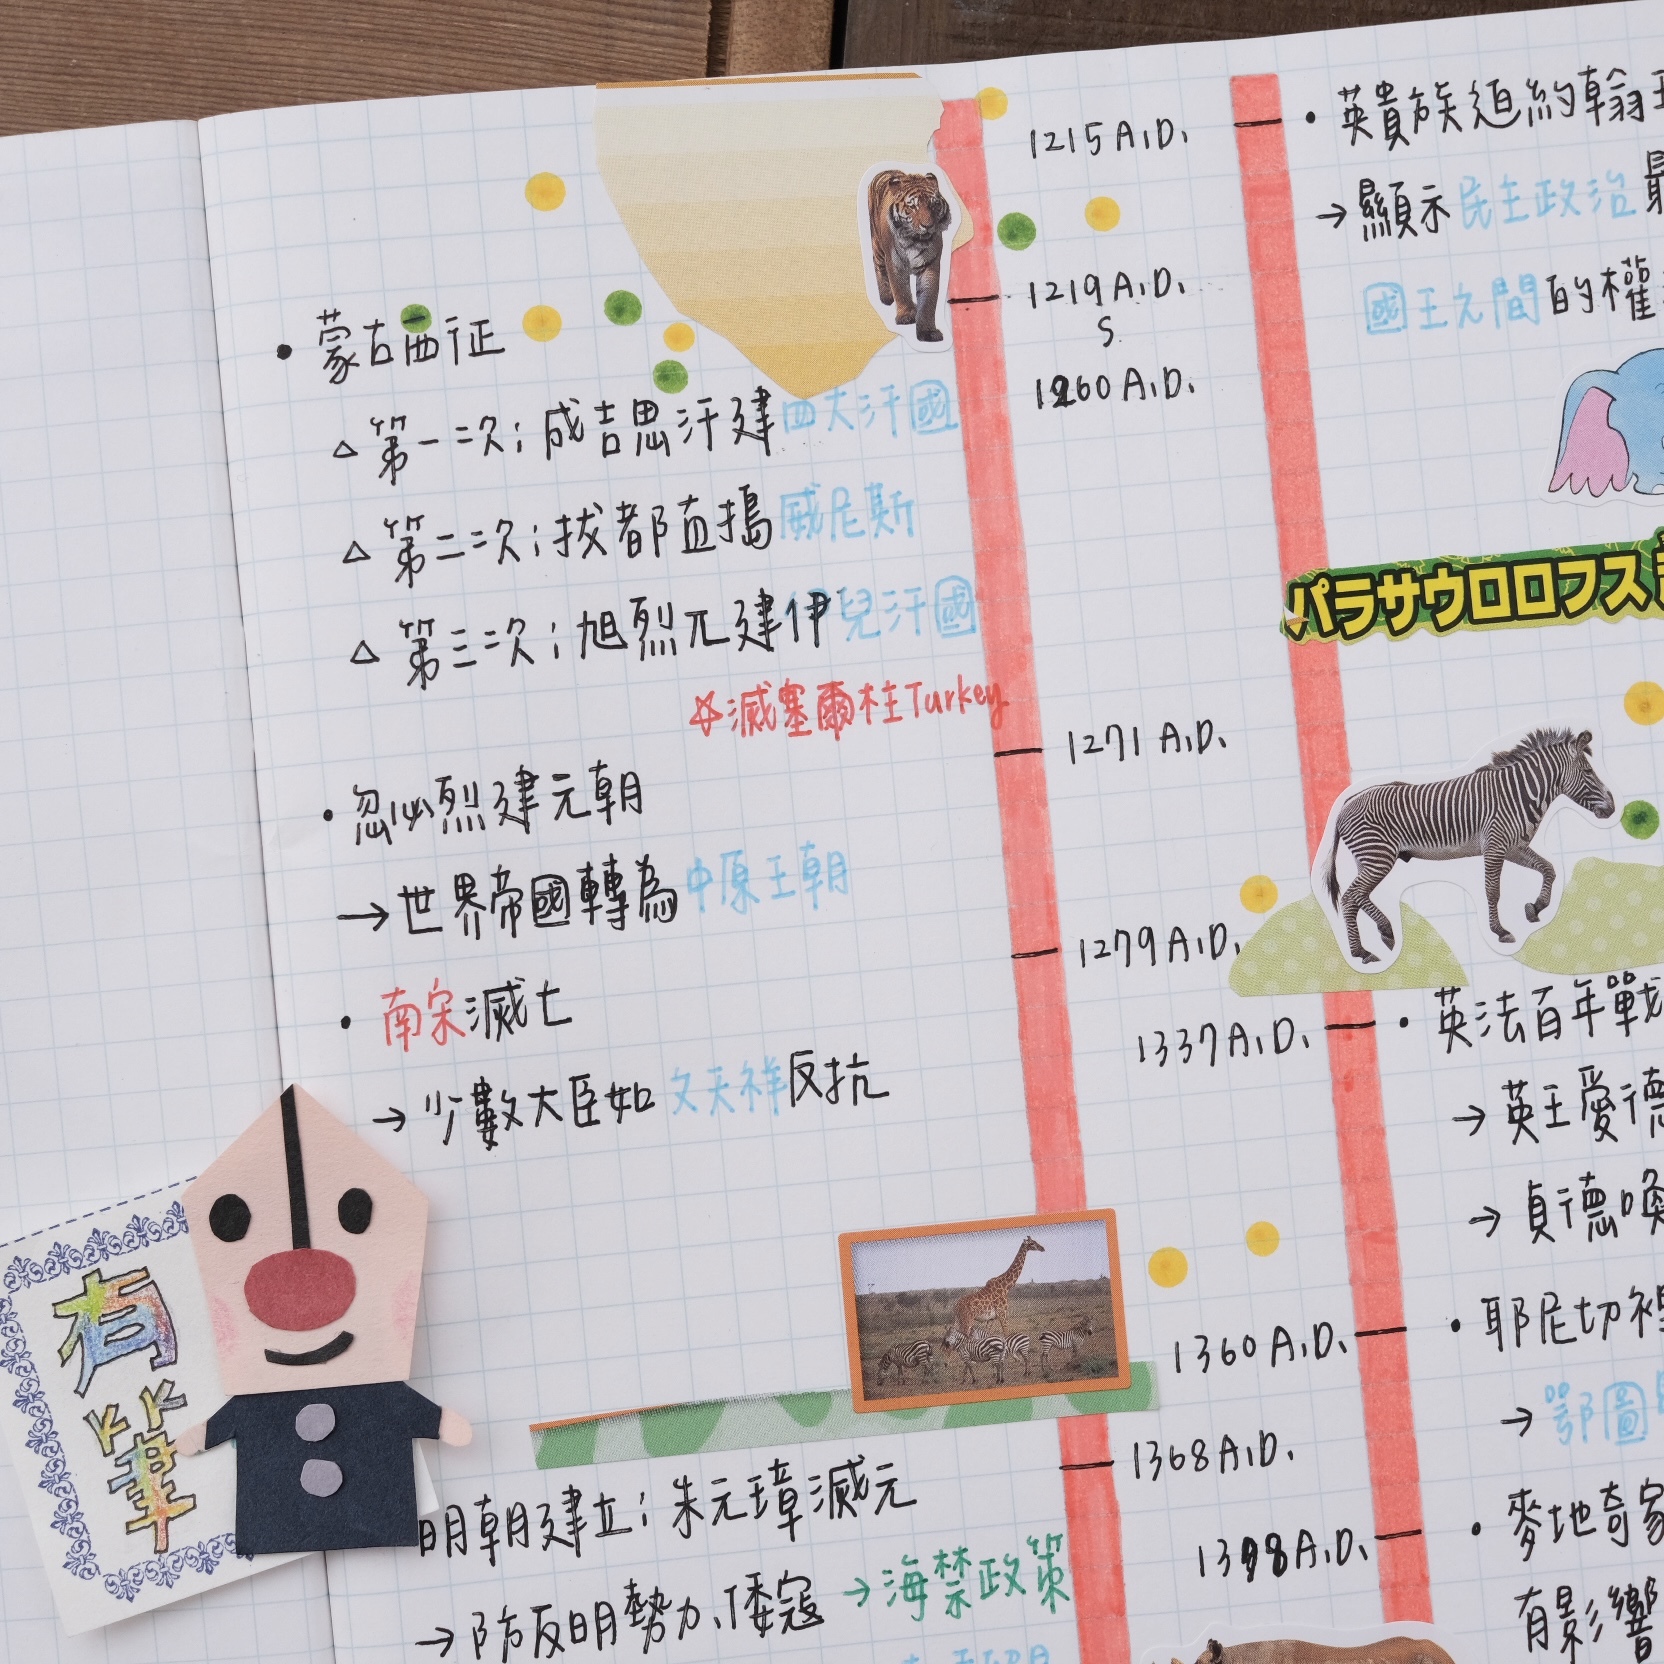 • 蒙古西征
△ 第一次：成吉思汗建四大汗國
△ 第二次：拔都直搗威尼斯
△ 第三次：旭烈兀建伊兒汗國
☆滅塞爾柱Turkey
• 忽必烈建元朝
→世界帝國轉為中原王朝
• 南宋滅亡
→ 少數大臣如文天祥反抗
明朝建立：朱元璋滅元
→防反明勢力、倭寇 →海禁政策
有筆
1215 A.D.
1219 A.D.
S
1260 A.D.
1271 A.D.
1279 A.D.
1337 A.D.
1360 A.D.
1368 A.D.
1398 A.D.
• 英貴族迫約翰王
→顯示民主政治最
國王之間的權
パラサウロロフス
• 英法百年戰
→英王愛德
→貞德喚
• 耶尼切裡
→ 鄂圖
• 麥地奇家
有影響